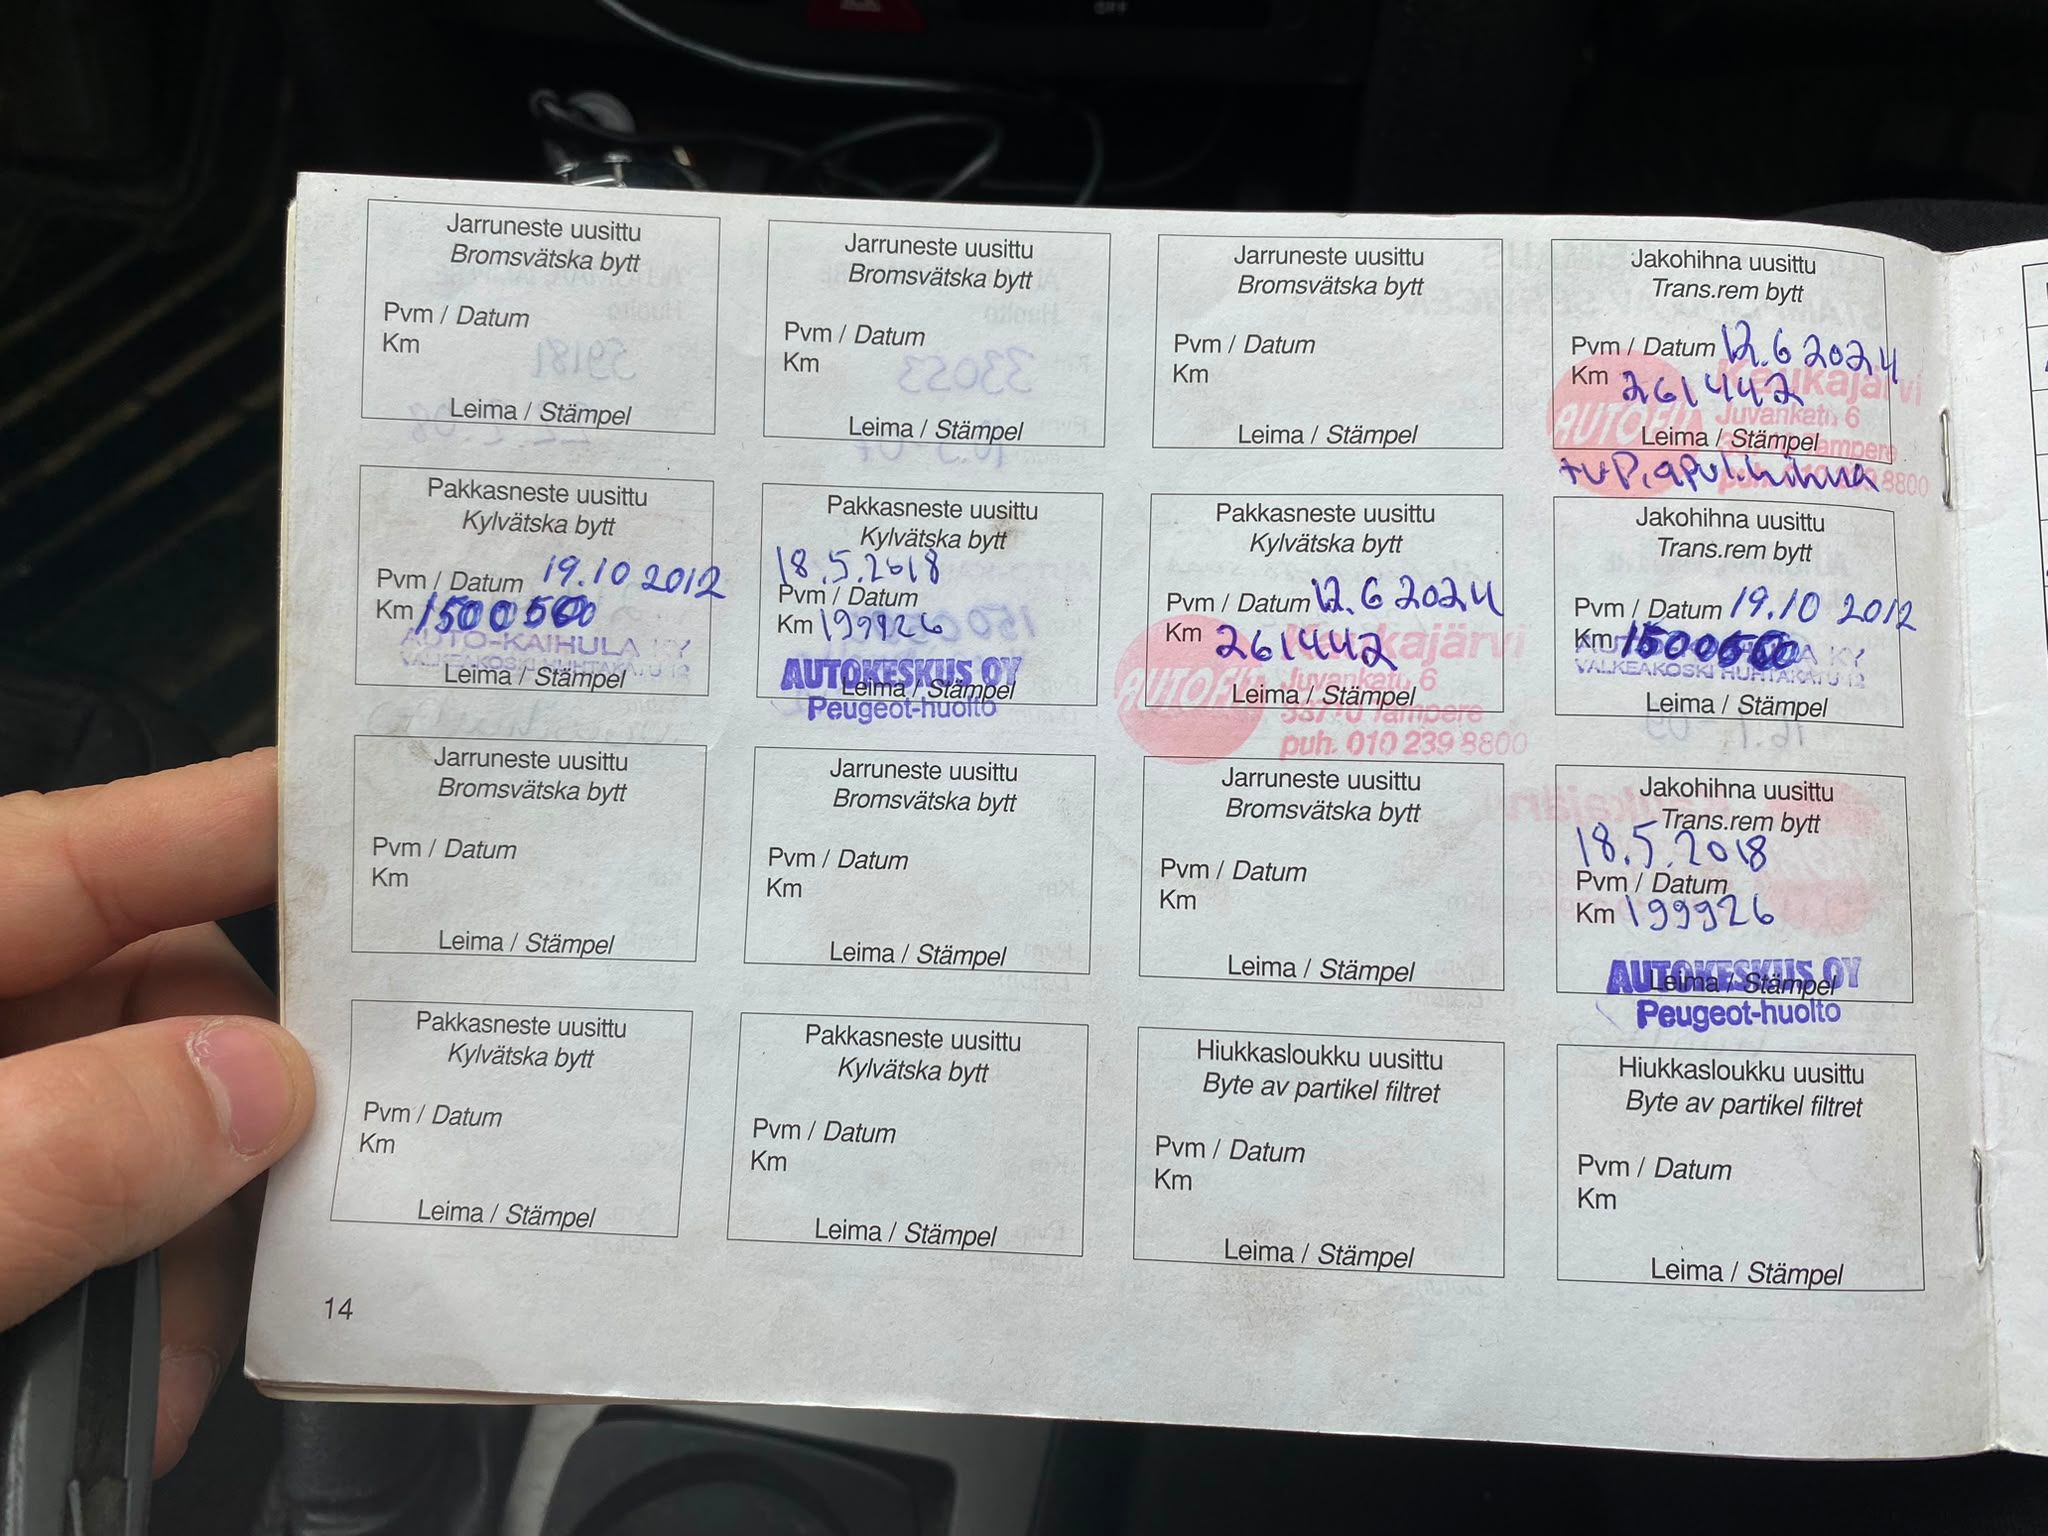 OFF
Jarruneste uusittu
Bromsvätska bytt
Pvm / Datum
Km
Leima / Stämpel
Jarruneste uusittu
Bromsvätska bytt
Pvm / Datum
Km
Leima / Stämpel
Jarruneste uusittu
Bromsvätska bytt
Pvm / Datum
Km
Leima / Stämpel
Jakohihna uusittu
Trans.rem bytt
Pvm / Datum 12.6 2024
Km 261442
Kaukajärvi
AUTOFIT
Juvankatu 6
Leima / Stämpel
Tampere
puh. 010 239 8800
Pakkasneste uusittu
Kylvätska bytt
Pvm / Datum 19.10 2012
Km
AUTO-KAIHULA KY
VALKEAKOSKI HUHTAKATU 12
Leima / Stämpel
Pakkasneste uusittu
Kylvätska bytt
18.5.2018
Pvm / Datum
Km 199926
AUTOKESKUS OY
Leima / Stämpel
Peugeot-huolto
Pakkasneste uusittu
Kylvätska bytt
Pvm / Datum 12.6 2024
Km 261442
Kaukajärvi
AUTOFIT
Juvankatu 6
Leima / Stämpel
33710 Tampere
puh. 010 239 8800
Jakohihna uusittu
Trans.rem bytt
Pvm / Datum 19.10 2012
Km
KY
VALKEAKOSKI HUHTAKATU 12
Leima / Stämpel
Jarruneste uusittu
Bromsvätska bytt
Pvm / Datum
Km
Leima / Stämpel
Jarruneste uusittu
Bromsvätska bytt
Pvm / Datum
Km
Leima / Stämpel
Jarruneste uusittu
Bromsvätska bytt
Pvm / Datum
Km
Leima / Stämpel
Jakohihna uusittu
Trans.rem bytt
18.5.2018
Pvm / Datum
Km 199926
AUTOKESKUS OY
Leima / Stämpel
Peugeot-huolto
Pakkasneste uusittu
Kylvätska bytt
Pvm / Datum
Km
Leima / Stämpel
Pakkasneste uusittu
Kylvätska bytt
Pvm / Datum
Km
Leima / Stämpel
Hiukkasloukku uusittu
Byte av partikel filtret
Pvm / Datum
Km
Leima / Stämpel
Hiukkasloukku uusittu
Byte av partikel filtret
Pvm / Datum
Km
Leima / Stämpel
14